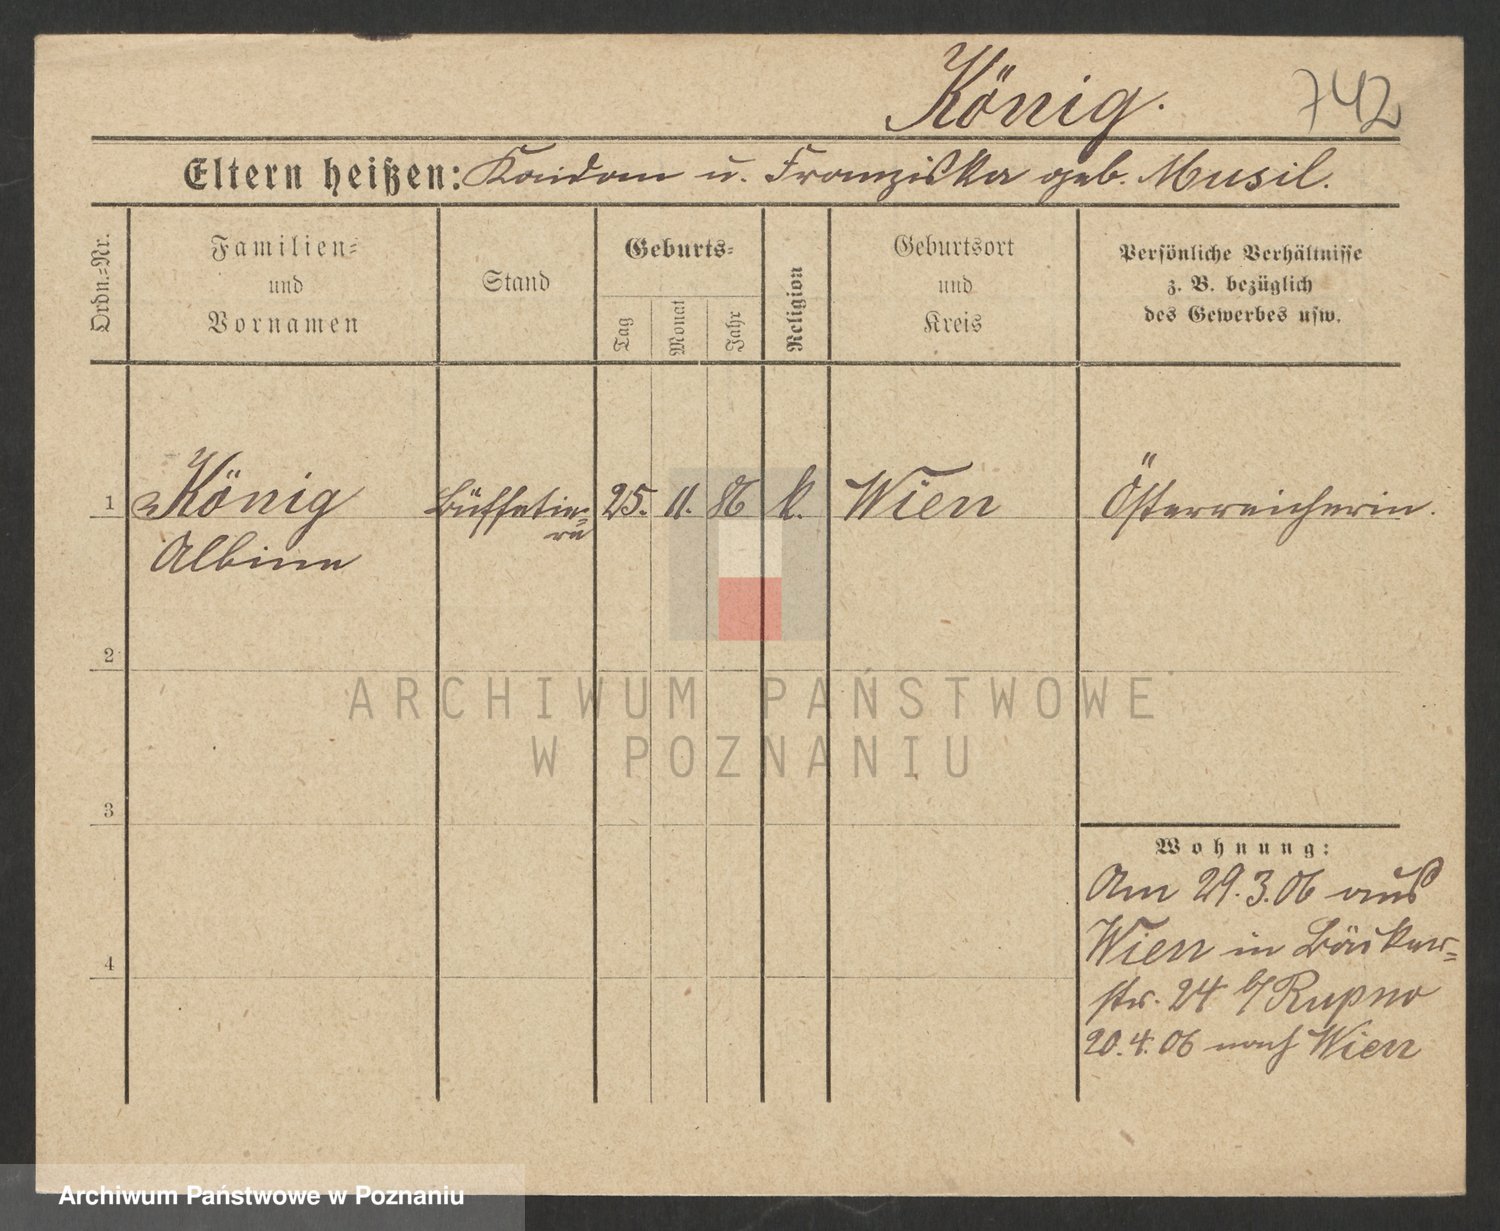 König. 742
Eltern heißen: u. Franziska geb. Musil.
Ordn.=Nr.
Familien=
und
Vornamen
Stand
Geburts=
Tag
Monat
Jahr
Religion
Geburtsort
und
Kreis
Persönliche Verhältnisse
z. B. bezüglich
des Gewerbes usw.
1 König Büffetie= 25. 11. 86 k. Wien Österreicherin.
re
Albine
2
3
4
Wohnung:
Am 29.3.06 aus
Wien in Bäcker=
str. 24 b/ Rupno
20.4.06 nach Wien
ARCHIWUM PAŃSTWOWE
W POZNANIU
Archiwum Państwowe w Poznaniu